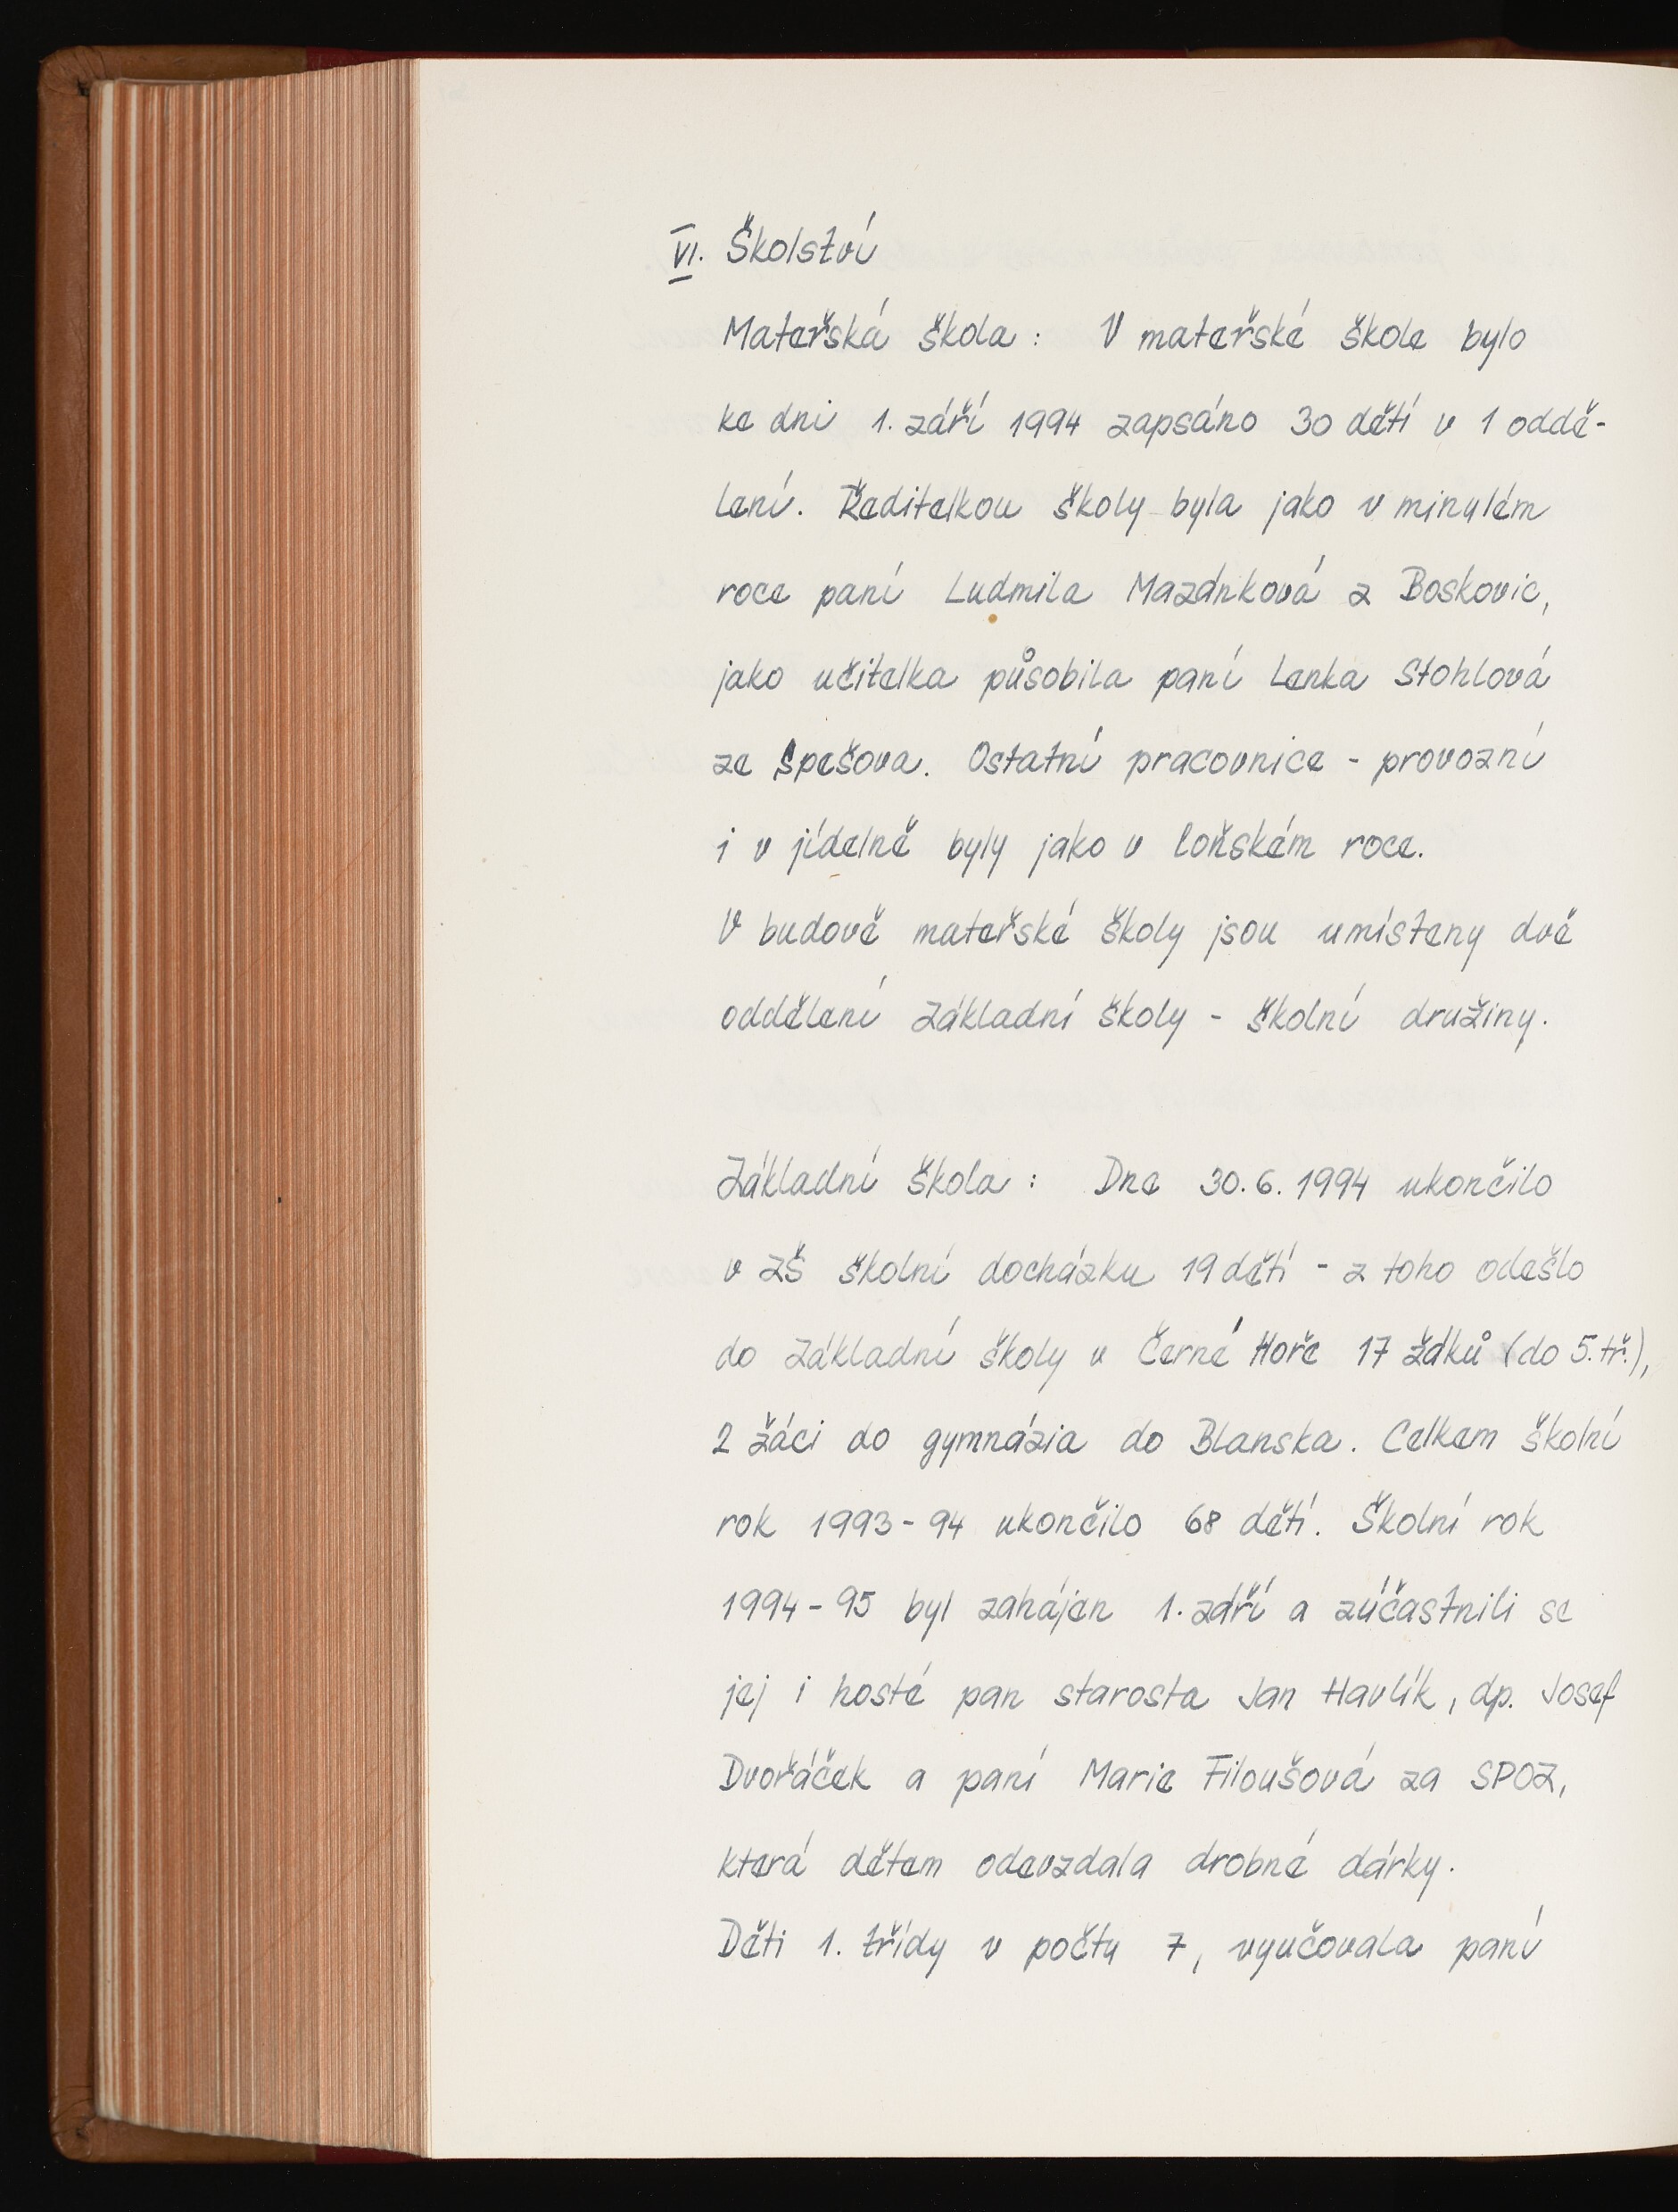 VI. Školství
Mateřská škola: V mateřské škole bylo
ke dni 1. září 1994 zapsáno 30 dětí v 1 oddě-
lení. Ředitelkou školy byla jako v minulém
roce paní Ludmila Mazánková z Boskovic,
jako učitelka působila paní Lenka Stohlová
ze Spešova. Ostatní pracovnice - provozní
i v jídelně byly jako v loňském roce.
V budově mateřské školy jsou umísteny dvě
oddělení Základní školy - školní družiny.
Základní škola: Dne 30.6.1994 ukončilo
v ZŠ školní docházku 19 dětí - z toho odešlo
do Základní školy v Černé Hoře 17 žáků (do 5.tř.),
2 žáci do gymnázia do Blanska. Celkem školní
rok 1993-94 ukončilo 68 dětí. Školní rok
1994-95 byl zahájen 1. září a zúčastnili se
jej i hosté pan starosta Jan Havlík, dp. Josef
Dvořáček a paní Marie Filoušová za SPOZ,
která dětem odevzdala drobné dárky.
Děti 1. třídy v počtu 7, vyučovala paní